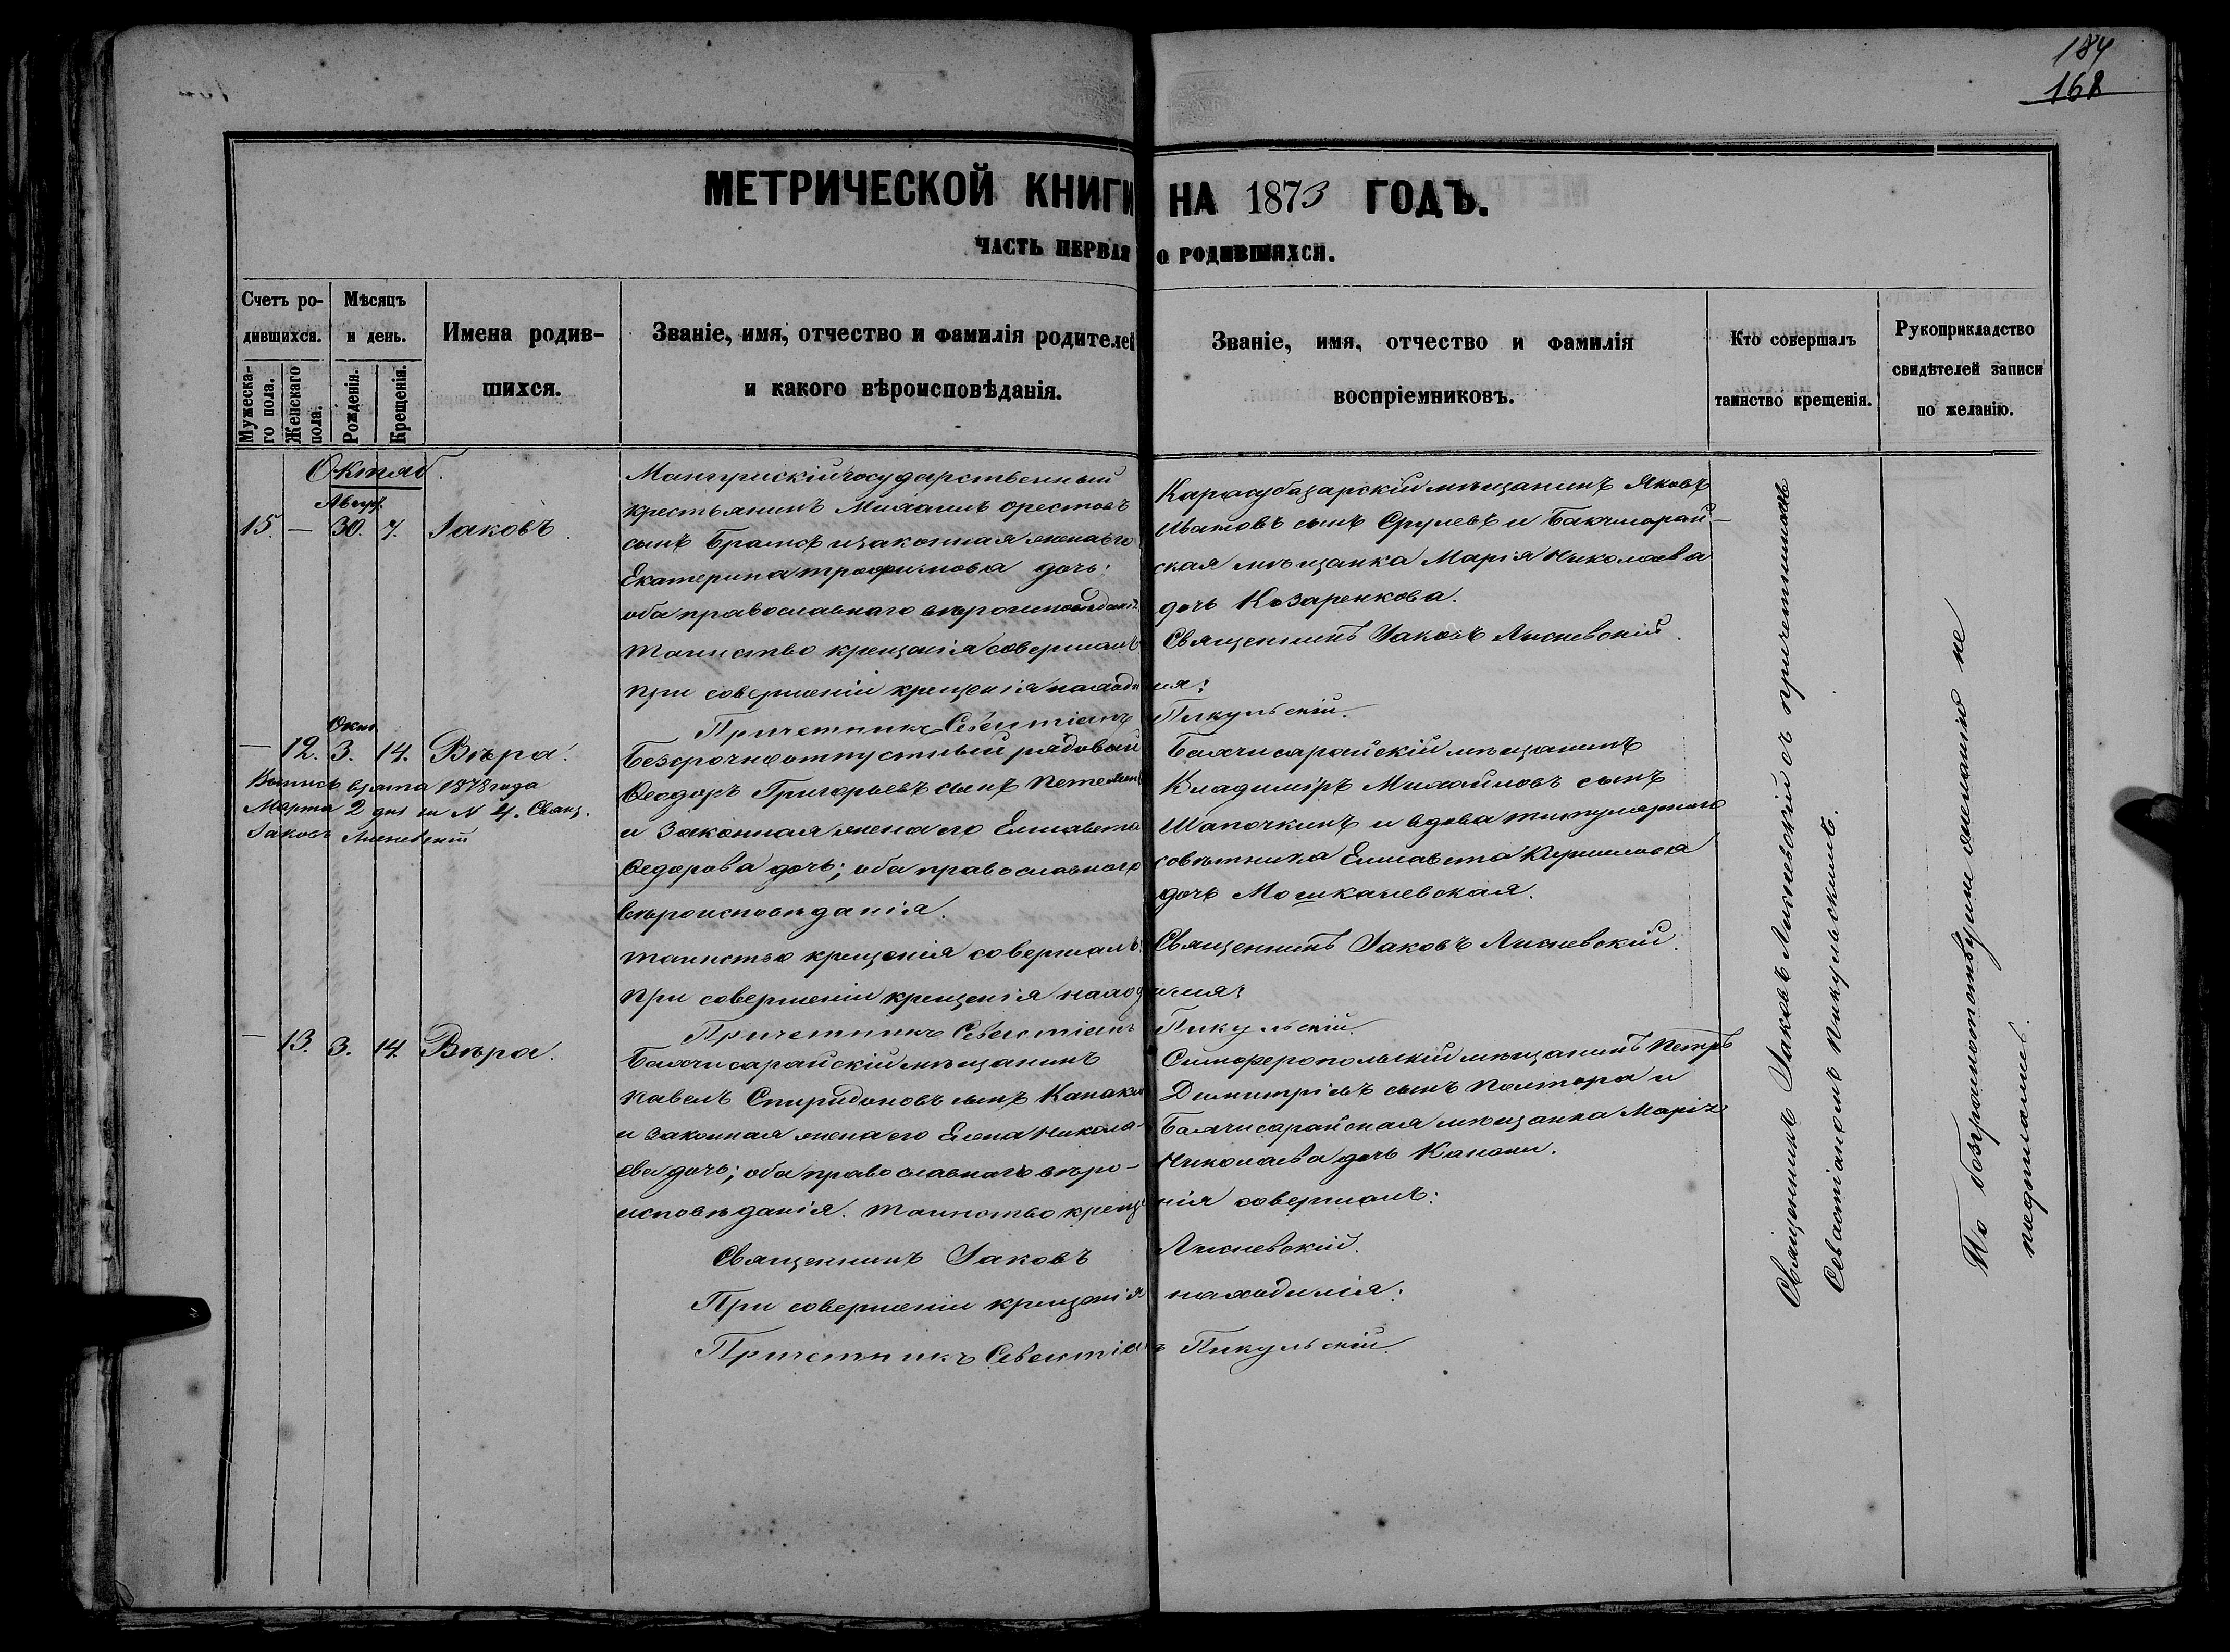 184
168
МЕТРИЧЕСКОЙ КНИГИ НА 1873 ГОДЪ.
ЧАСТЬ ПЕРВАЯ О РОДИВШИХСЯ.
Счетъ ро-
дившихся.
Мужеска-
го пола.
Женскаго
пола.
Мѣсяцъ
и день.
Рожденія.
Крещенія.
Имена родив-
шихся.
Званіе, имя, отчество и фамилія родителей
и какого вѣроисповѣданія.
Званіе, имя, отчество и фамилія
воспріемниковъ.
Кто совершалъ
таинство крещенія.
Рукоприкладство
свидѣтелей записи
по желанію.
Октяб.
Авгус.
15. — 30. 7. Іаковъ.
Мангушскій государственный
крестьянинъ Михаилъ Орестовъ
сынъ и законная жена его
Екатерина Трофимова дочь:
оба православнаго вѣроисповѣданія.
Таинство крещенія совершалъ:
при совершеніи крещенія находи
Причетникъ Севастіанъ
Карасубазарскій мѣщанинъ Яковъ
Ивановъ сынъ и Бахчисарай-
ская мѣщанка Марія Николаева
дочь Козаренкова.
Священникъ Іаковъ Лисневскій.
лся:
Пикульскій.
Окт
— 12. 3. 14. Вѣра.
Выпись взята 1878 года
Марта 2 дня за N 4. Свящ.
Іаковъ Лисневскій
Безсрочноотпустный рядовой
Ѳеодоръ Григорьевъ сынъ
и законная жена его Елисавета
Ѳедорова дочь; оба православнаго
вѣроисповѣданія.
Таинство крещенія совершалъ:
При совершеніи крещенія наход
Причетникъ Севастіанъ
Бахчисарайскій мѣщанинъ
Владиміръ Михайловъ сынъ
Шапочкинъ и вдова титулярнаго
совѣтника Елисавета Кириллова
дочь Мошкалевская.
Священникъ Іаковъ Лисневскій.
ился:
Пикульскій.
— 13. 3. 14. Вѣра.
Бахчисарайскій мѣщанинъ
Павелъ Спиридоновъ сынъ
и законная жена его Елена Никола-
ева дочь; оба православнаго вѣро-
исповѣданія. Таинство креще
Священникъ Іаковъ
При совершеніи крещенія
Причетникъ Севастіан
Симферопольскій мѣщанинъ Петръ
Димитріевъ сынъ Полтора и
Бахчисарайская мѣщанка Марія
Николаева дочь
нія совершалъ:
Лисневскій.
находился:
ъ Пикульскій.
Священникъ Іаковъ Лисневскій съ причетникомъ
Севастіаномъ Пикульскимъ.
По безграмотству и желанію не
подписались.